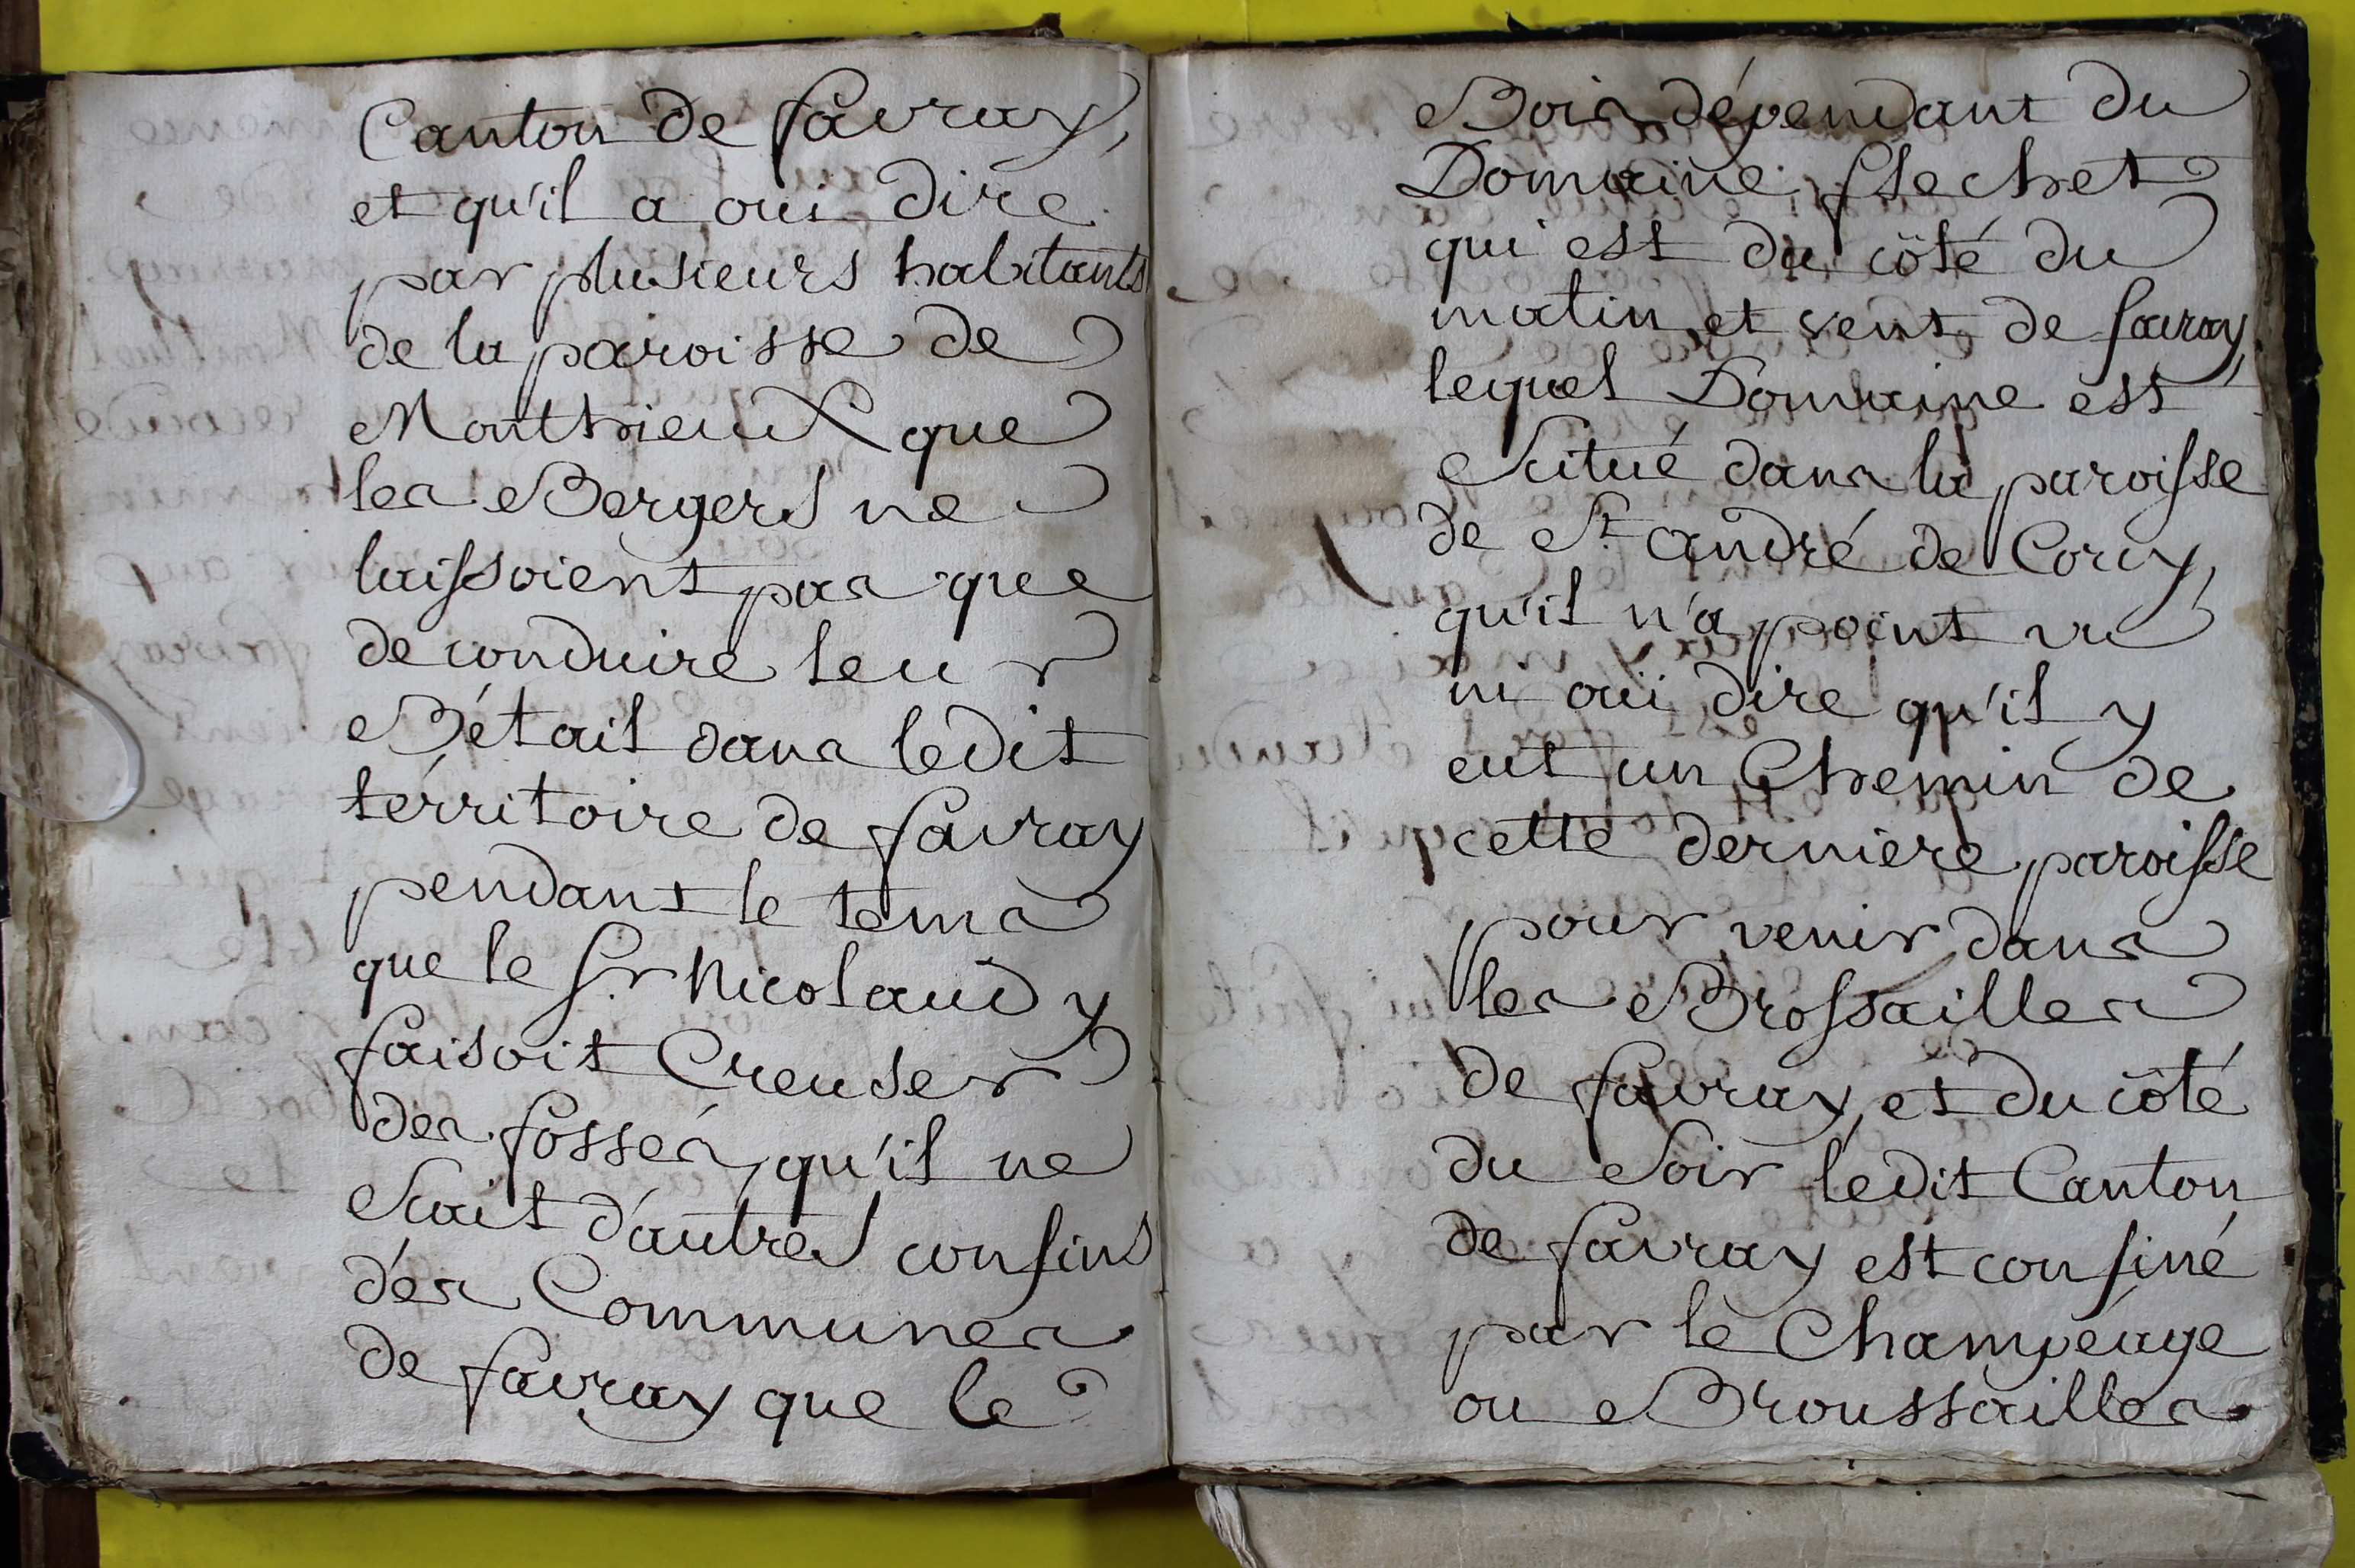 Canton de favray,
et qu'il a oui dire
par plusieurs habitants
de la paroisse de
Monthieux que
les Bergers ne
laissoient pas que
de conduire leur
Bétail dans ledit
térritoire de favray
pendant le tems
que le Sr. Nicolaud y
faisoit Creuser
des fossés, qu'il ne
Scait d'autres confins
dés Communes
de favray que le
Bois dépendant du
Domaine flechet
qui est du côté du
matin et vent de favray,
lequel Domaine est
Scitué dans la paroisse
de St. andré de Corcy,
qu'il n'a point vu
ni oüi dire qu'il y
eut un Chemin de
cette derniere paroisse
pour venir dans
les Brossailles
de favray, et du côté
du Soir ledit Canton
de favray est confiné
par le Champéage
ou Broussailles